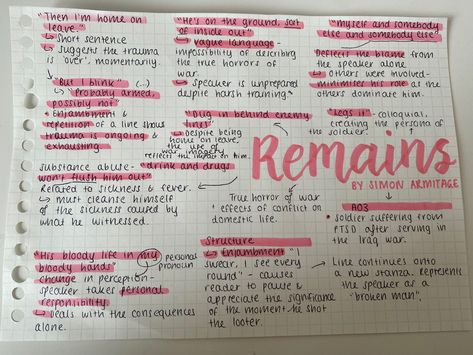 "Then I'm home on
leave."
↳ Short sentence
↳ Suggests the trauma
is 'over', momentarily.
"But I blink" (...)
"Probably armed,
possibly not"
↳ Enjambment &
repetition of a line shows
trauma is ongoing &
exhausting.
substance abuse - "drink and drugs
won't flush him out"
Related to sickness & fever.
↳ must cleanse himself
of the sickness caused by
what he witnessed.
"His bloody life in my
bloody hands"
personal
pronoun
change in perception -
speaker takes personal
responsibility
↳ Deals with the consequences
alone.
"He's on the ground, sort
of inside out"
↳ vague language -
impossibility of describing
the true horrors of
war.
↳ Speaker is unprepared
despite harsh training
"Dug in behind enemy
↳ Despite being
home on leave,
the use of
war imagery
reflects the impact on him.
True horror of war
+ effects of conflict on
domestic life.
Structure
↳ Enjambment "I
swear, I see every
round" - causes
reader to pause &
appreciate the significance
of the moment he shot
the looter.
"myself and somebody
else and somebody else"
Deflects the blame from
the speaker alone
↳ Others were involved -
minimises his role as the
others dominate him.
"Legs it" - colloquial,
creating the persona of
the soldier.
Remains
BY SIMON ARMITAGE
AO3
• soldier suffering from
PTSD after serving in
the Iraq war.
Line continues onto
a new stanza. Represents
the speaker as a
"broken man".